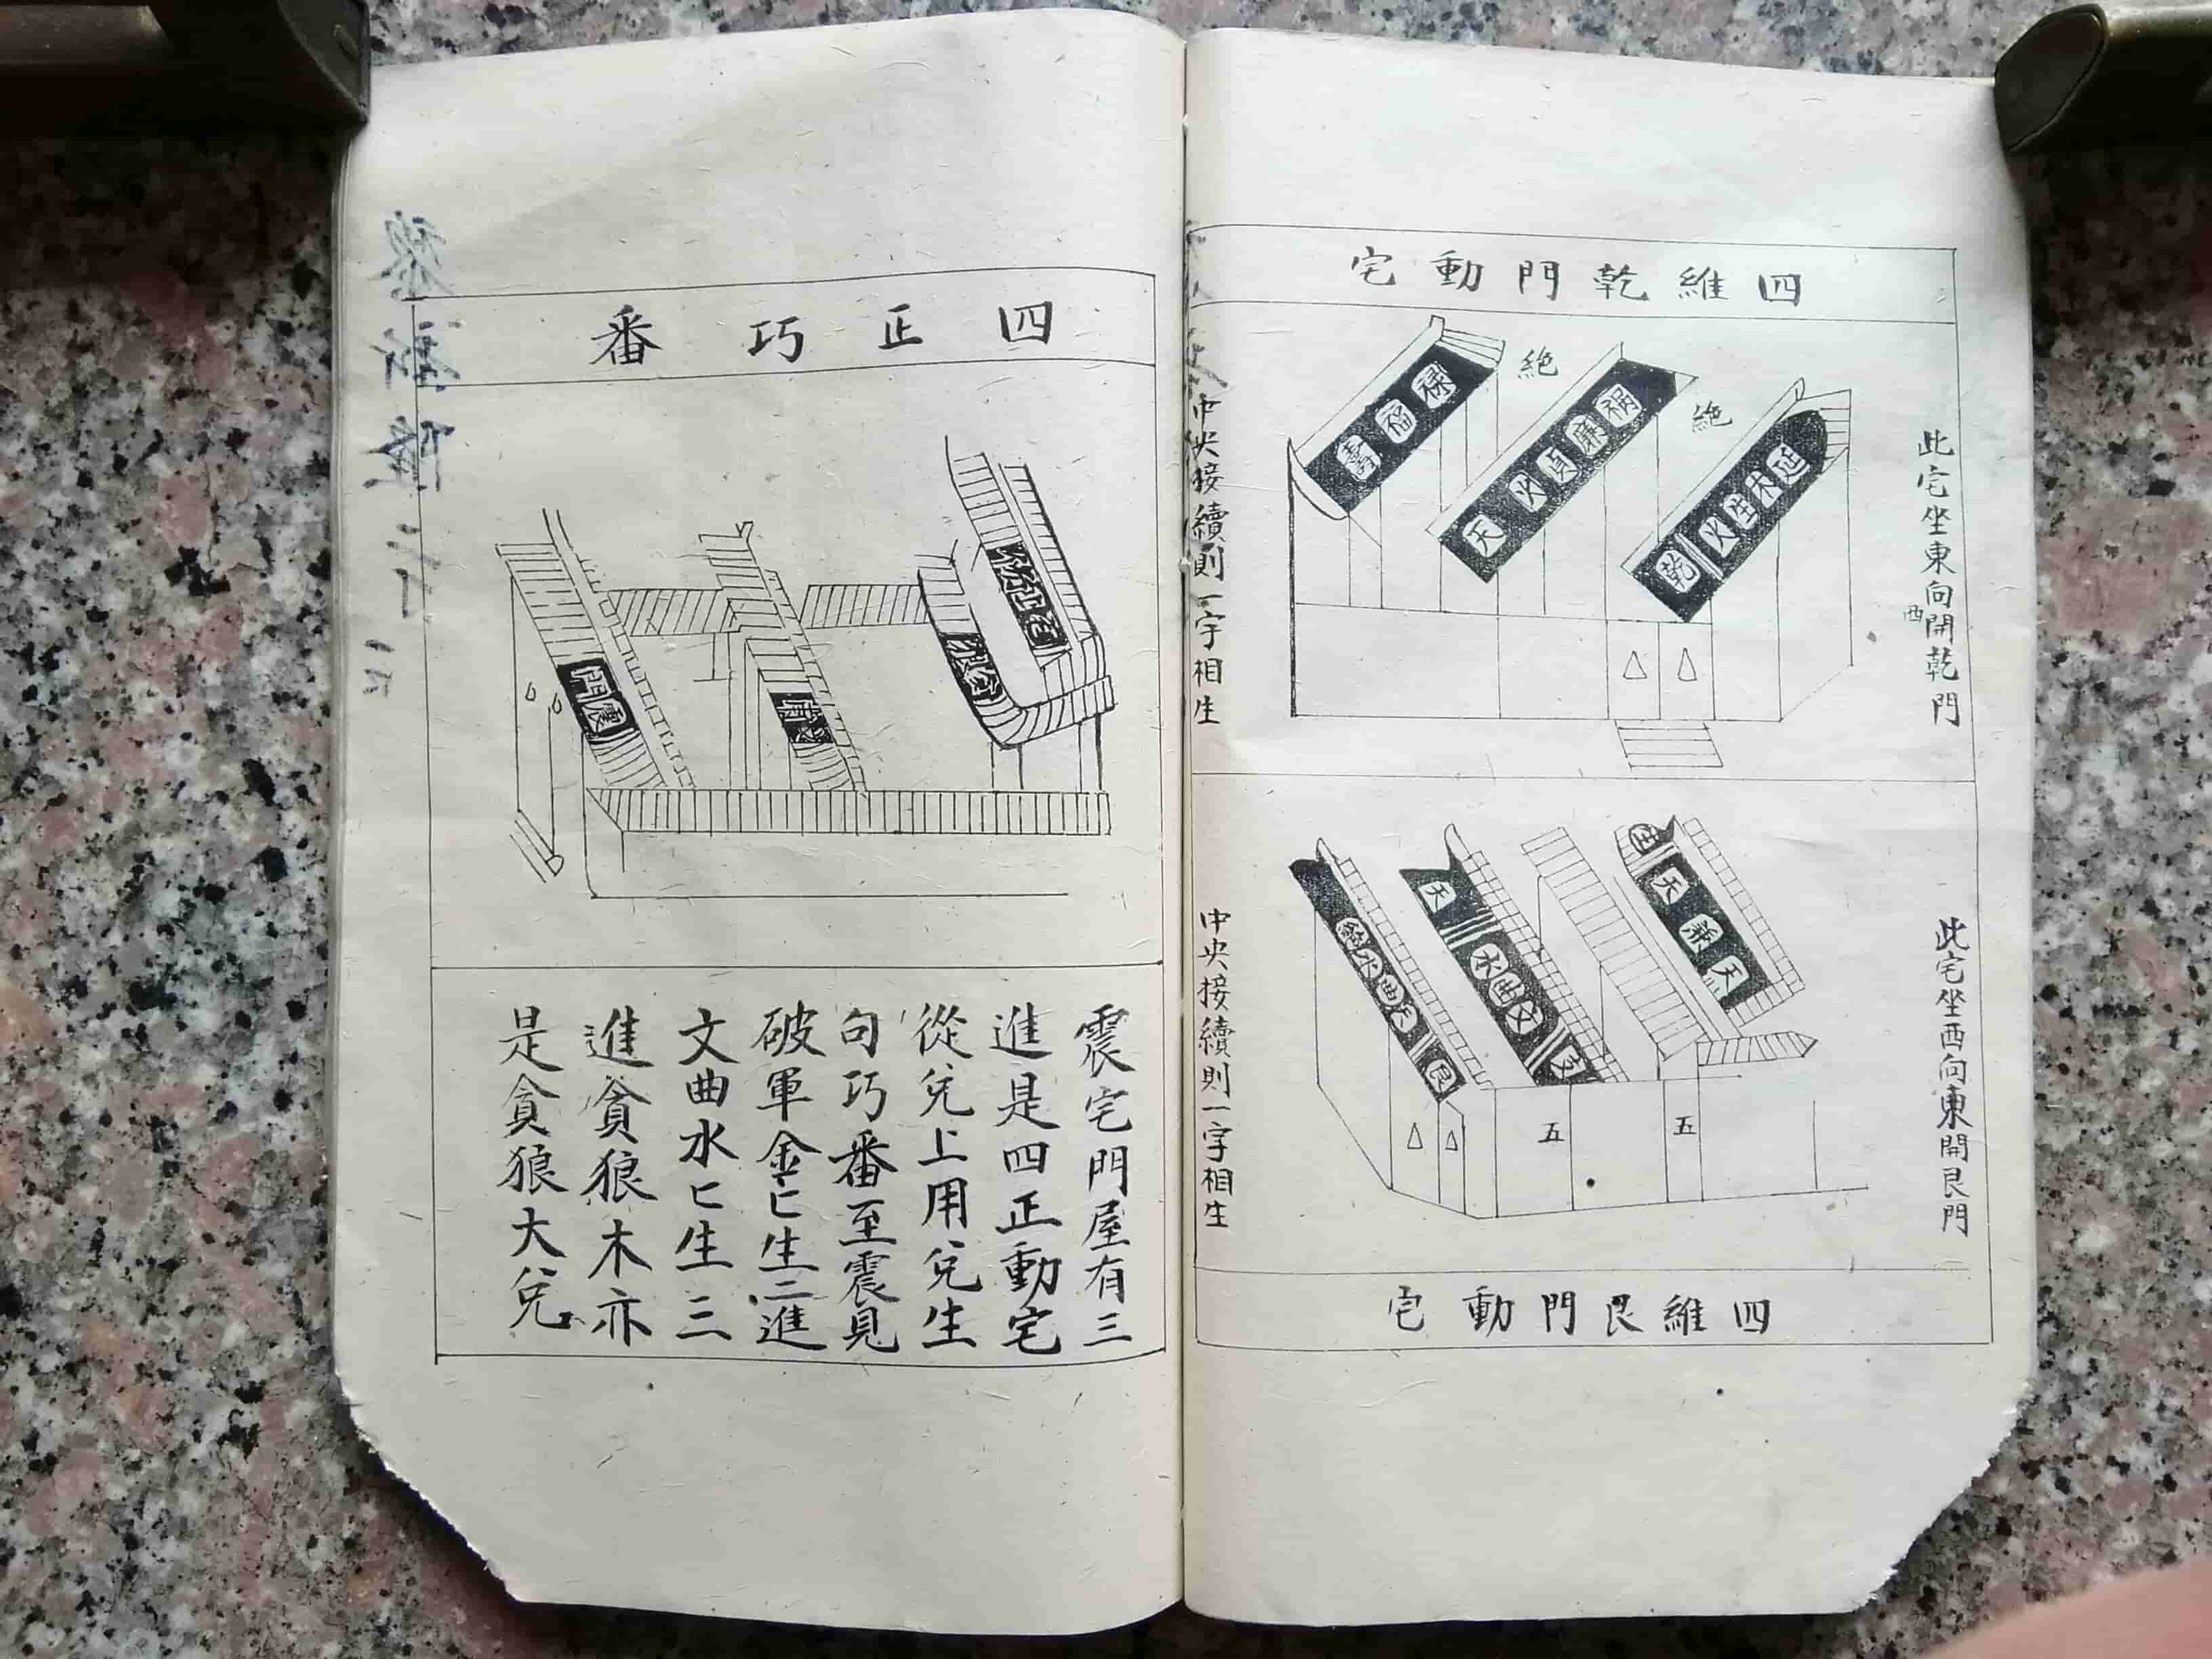 四維乾門動宅
此宅坐東向開乾門
西
絕
絕
禄福壽
天火貞廉禍
乾火生木延
中央接續則一字相生
此宅坐西向東開艮門
天
天
艮
五
五
中央接續則一字相生
四維艮門動宅
四正巧番
門震
震宅門屋有三
進是四正動宅
從兌上用兌生
句巧番至震見
破軍金匕生二進
文曲水匕生三
進貪狼木亦
是貪狼大兌